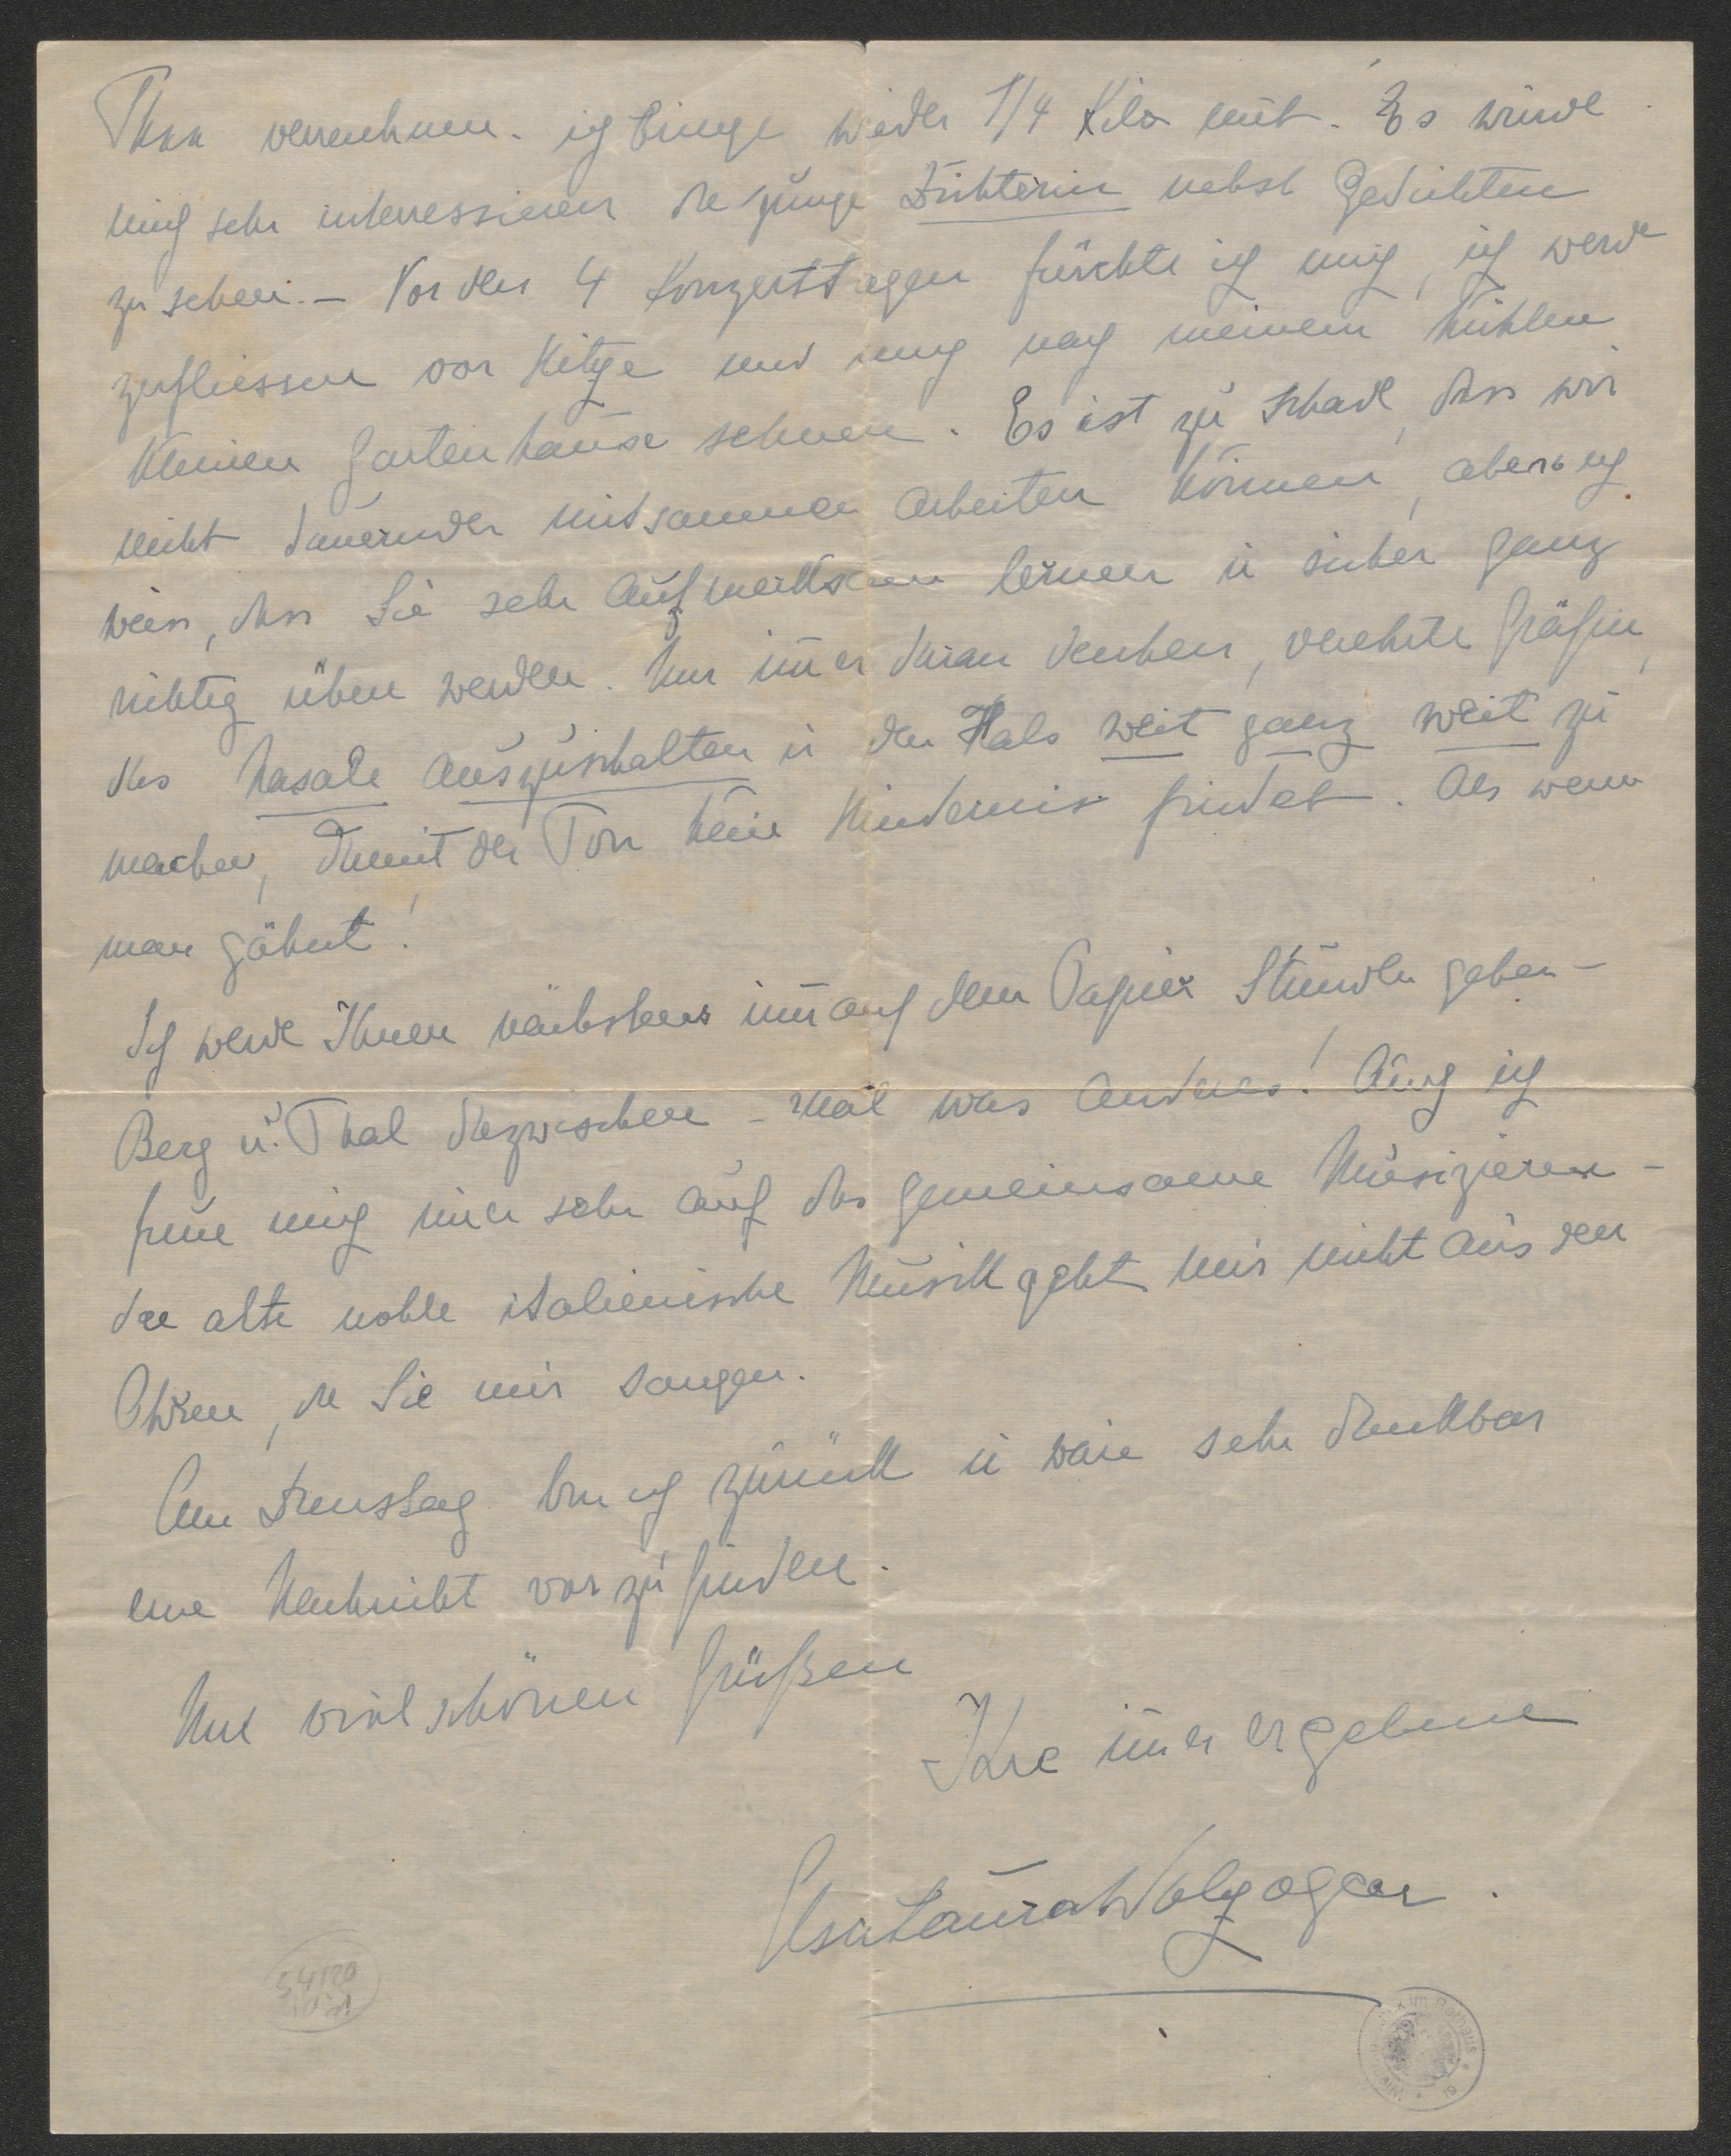 Thee vernehmen. ich bringe wieder 1/4 Kilo mit. Es würde
mich sehr interessieren die junge Dichterin nebst Gedichten
zu sehen. – Vor den 4 Konzerttagen fürchte ich mich, ich werde
zerfliessen vor Hitze und mich nach meinem kühlen
kleinen Gartenhause sehnen. Es ist zu schade, dass wir
nicht dauernder mitsammen arbeiten können, aber ich
weiss, dass Sie sehr aufmerksam lernen u sicher ganz
richtig üben werden. Nur im̄er daran denken, verehrte Gräfin,
das Nasale auszuschalten u den Hals weit ganz weit zu
machen, damit der Ton kein Hindernis findet. Als wenn
man gähnt!
Ich werde Ihnen nächstens nur auf dem Papier Stunden geben –
Berg u. Thal dazwischen – mal was Anderes! Auch ich
freue mich im̄er sehr auf das gemeinsame Musizieren –
die alte noble italienische Musik geht mir nicht aus den
Ohren, die Sie mir sangen.
Am Dienstag bin ich zurück u wäre sehr dankbar
eine Nachricht vorzufinden.
Mit viel schönen Grüßen
Ihre im̄er ergebene
Elsa Laura Wolzogen.